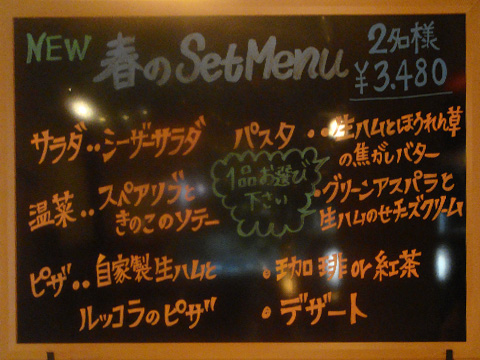 NEW 春のSetMenu 2名様
¥3.480
サラダ‥シーザーサラダ
温菜‥スペアリブと
きのこのソテー
ピザ‥自家製生ハムと
ルッコラのピザ
パスタ‥生ハムとほうれん草
の焦がしバター
・グリーンアスパラと
生ハムのせチーズクリーム
1品お選び
下さい
・珈琲or紅茶
・デザート